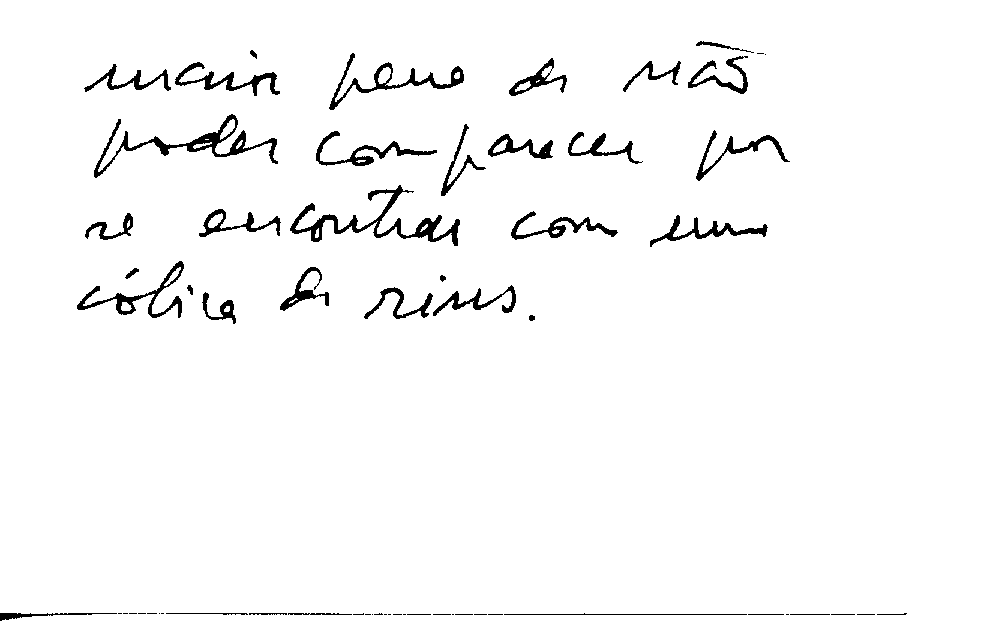 maior pena de não
poder comparecer por
se encontrar com uma
cólica de rins.